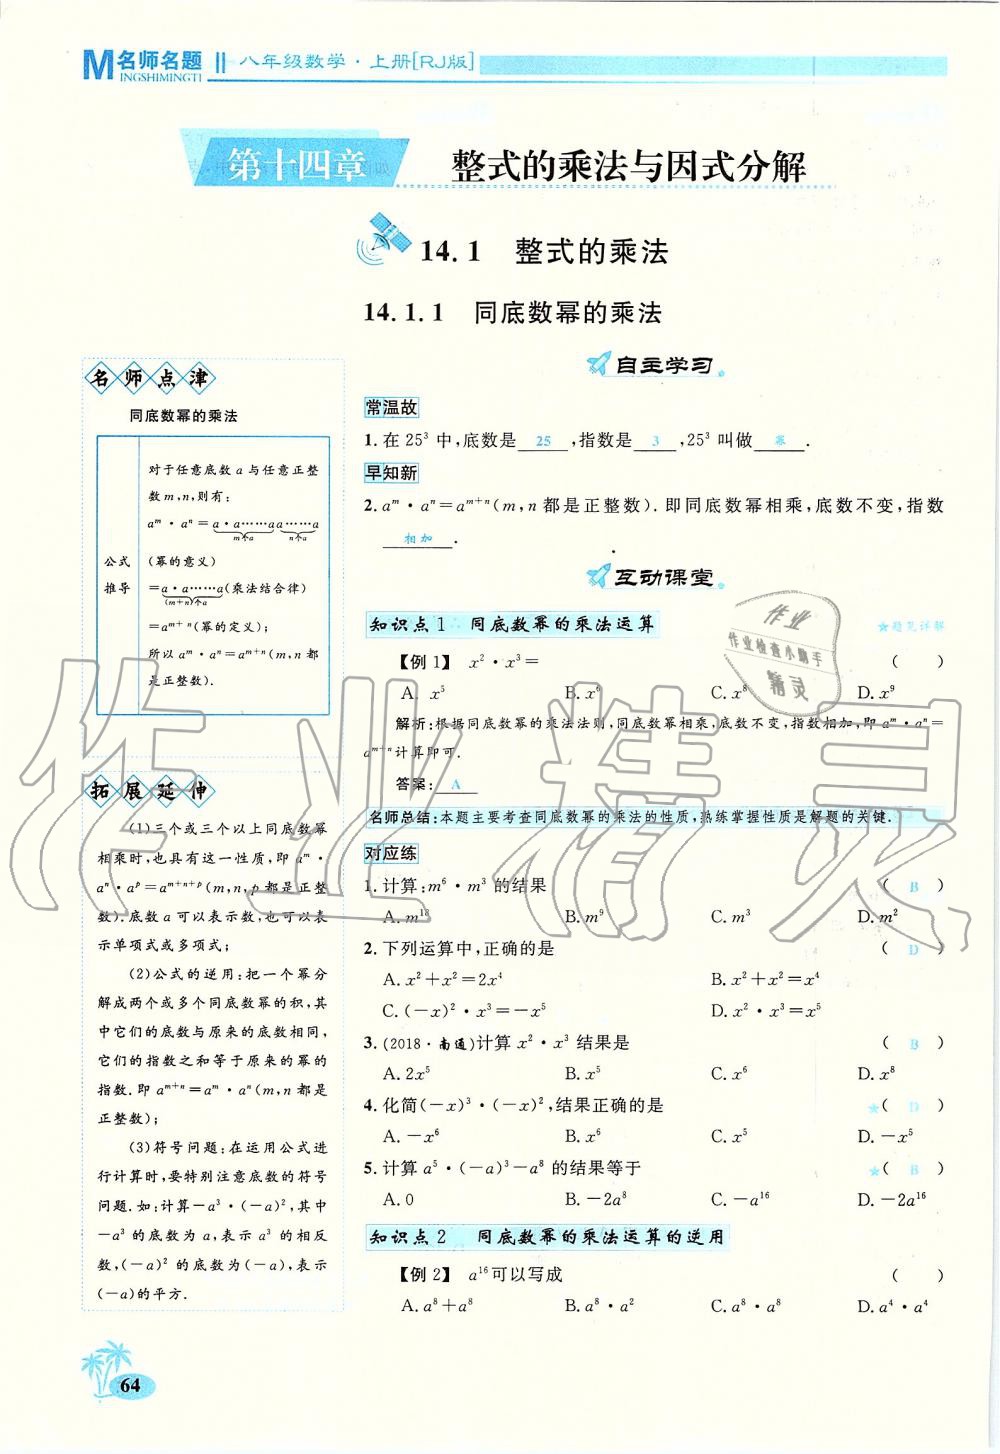 名师名题
MINGSHIMINGTI
八年级数学·上册[RJ版]
第十四章 整式的乘法与因式分解
14.1 整式的乘法
14.1.1 同底数幂的乘法
名师点津
同底数幂的乘法
公式推导
对于任意底数a与任意正整
数m,n,则有:
aᵐ·aⁿ=a·a……a a……a
m个a n个a
(幂的意义)
=a·a……a(乘法结合律)
(m+n)个a
=aᵐ⁺ⁿ(幂的定义);
所以aᵐ·aⁿ=aᵐ⁺ⁿ(m,n都
是正整数).
拓展延伸
(1)三个或三个以上同底数幂
相乘时,也具有这一性质,即aᵐ·
aⁿ·aᵖ=aᵐ⁺ⁿ⁺ᵖ(m,n,p都是正整
数).底数a可以表示数,也可以表
示单项式或多项式;
(2)公式的逆用:把一个幂分
解成两个或多个同底数幂的积,其
中它们的底数与原来的底数相同,
它们的指数之和等于原来的幂的
指数.即aᵐ⁺ⁿ=aᵐ·aⁿ(m,n都是
正整数);
(3)符号问题:在运用公式进
行计算时,要特别注意底数的符号
问题.如:计算-a³·(-a)²,其中
-a³的底数为a,表示a³的相反
数,(-a)²的底数为(-a),表示
(-a)的平方.
自主学习
常温故
1.在25³中,底数是 25 ,指数是 3 ,25³叫做 幂 .
早知新
2.aᵐ·aⁿ=aᵐ⁺ⁿ(m,n都是正整数).即同底数幂相乘,底数不变,指数
相加 .
互动课堂
知识点1 同底数幂的乘法运算 ★题见详解
【例1】 x²·x³= ( )
A. x⁵ B. x⁶ C. x⁸ D. x⁹
解析:根据同底数幂的乘法法则,同底数幂相乘,底数不变,指数相加,即aᵐ·aⁿ=
aᵐ⁺ⁿ计算即可.
答案: A
名师总结:本题主要考查同底数幂的乘法的性质,熟练掌握性质是解题的关键.
对应练
1.计算:m⁶·m³的结果 ( B )
A. m¹⁸ B. m⁹ C. m³ D. m²
2.下列运算中,正确的是 ( D )
A. x²+x²=2x⁴ B. x²+x²=x⁴
C. (-x)²·x³=-x⁵ D. x²·x³=x⁵
3.(2018·南通)计算x²·x³结果是 ( B )
A. 2x⁵ B. x⁵ C. x⁶ D. x⁸
4.化简(-x)³·(-x)²,结果正确的是 ★( D )
A. -x⁶ B. x⁶ C. x⁵ D. -x⁵
5.计算a⁵·(-a)³-a⁸的结果等于 ★( B )
A. 0 B. -2a⁸ C. -a¹⁶ D. -2a¹⁶
知识点2 同底数幂的乘法运算的逆用
【例2】 a¹⁶可以写成 ( )
A. a⁸+a⁸ B. a⁸·a² C. a⁸·a⁸ D. a⁴·a⁴
64
作业
作业检查小助手
精灵
作业精灵